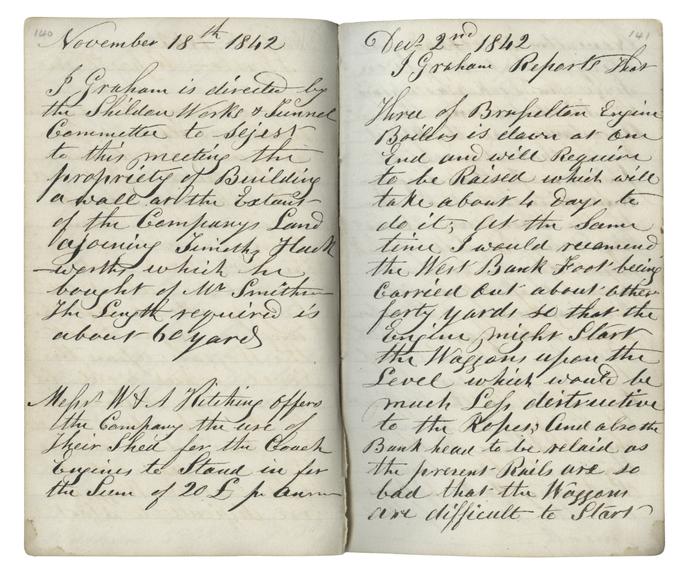 140
November 18th 1842
J Graham is directed by
the Shildon Works & Tunnel
Committee to Sejest
to this meeting the
propriety of Building
a wall at the Extent
of the Companys Land
ajoining Timothy Hack
worths which he
bought of Mr Smithson
the Length required is
about 60 yards
Messrs W & A Kitching offers
the Company the use of
their Shed for the Coach
Engines to Stand in for
the Sum of 20 £ pr annum
141
Decr 2nd 1842
J Graham Reports that
three of Brusselton Engine
Boilers is down at one
End and will Require
to be Raised which will
take about 4 days to
do it, at the Same
time I would recomend
the West Bank Foot being
Carried out about other
forty yards so that the
Engine might Start
the Waggons upon the
Level which would be
much Less destructive
to the Ropes; and also the
Bank head to be relaid as
the present Rails are so
bad that the Waggons
are difficult to Start